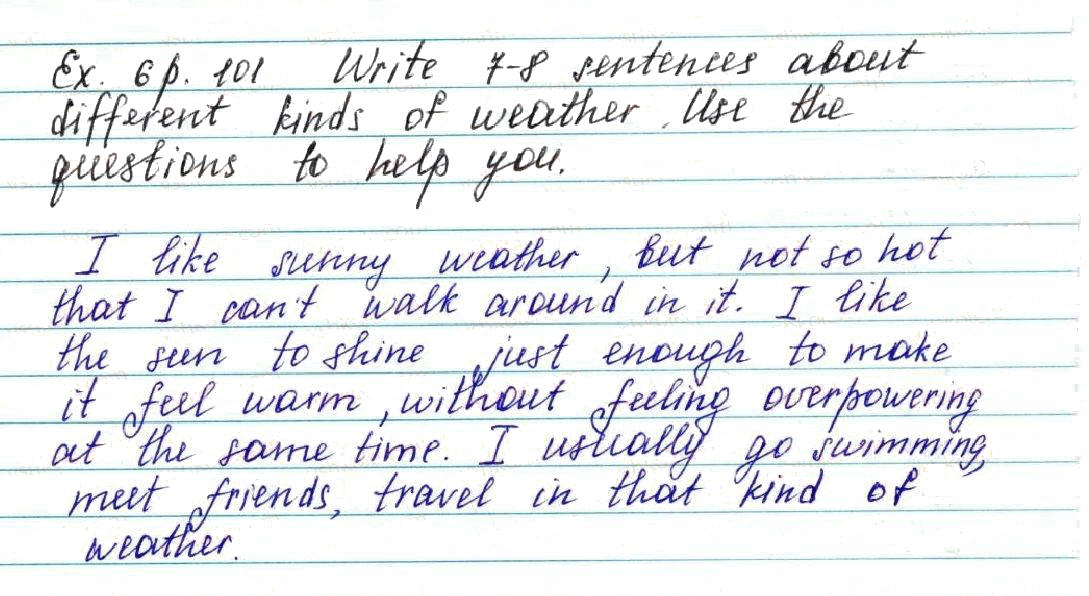 Ex. 6 p. 101 Write 7-8 sentences about
different kinds of weather. Use the
questions to help you.
I like sunny weather, but not so hot
that I can't walk around in it. I like
the sun to shine just enough to make
it feel warm, without feeling overpowering
at the same time. I usually go swimming,
meet friends, travel in that kind of
weather.